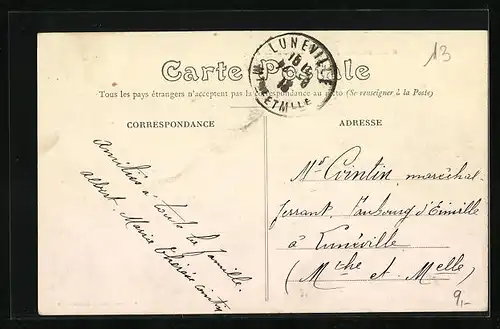 13
LUNEVILLE
MTHE ET MLLE
Carte Postale
Tous les pays étrangers n'acceptent pas la correspondance au recto (Se renseigner à la Poste)
CORRESPONDANCE
ADRESSE
amitiés a toute la famille
albert Marie Thérèse
Mr Cointin, maréchal-
ferrant, Faubourg d'Einville
à Lunéville
(Mthe et Melle)
9,-